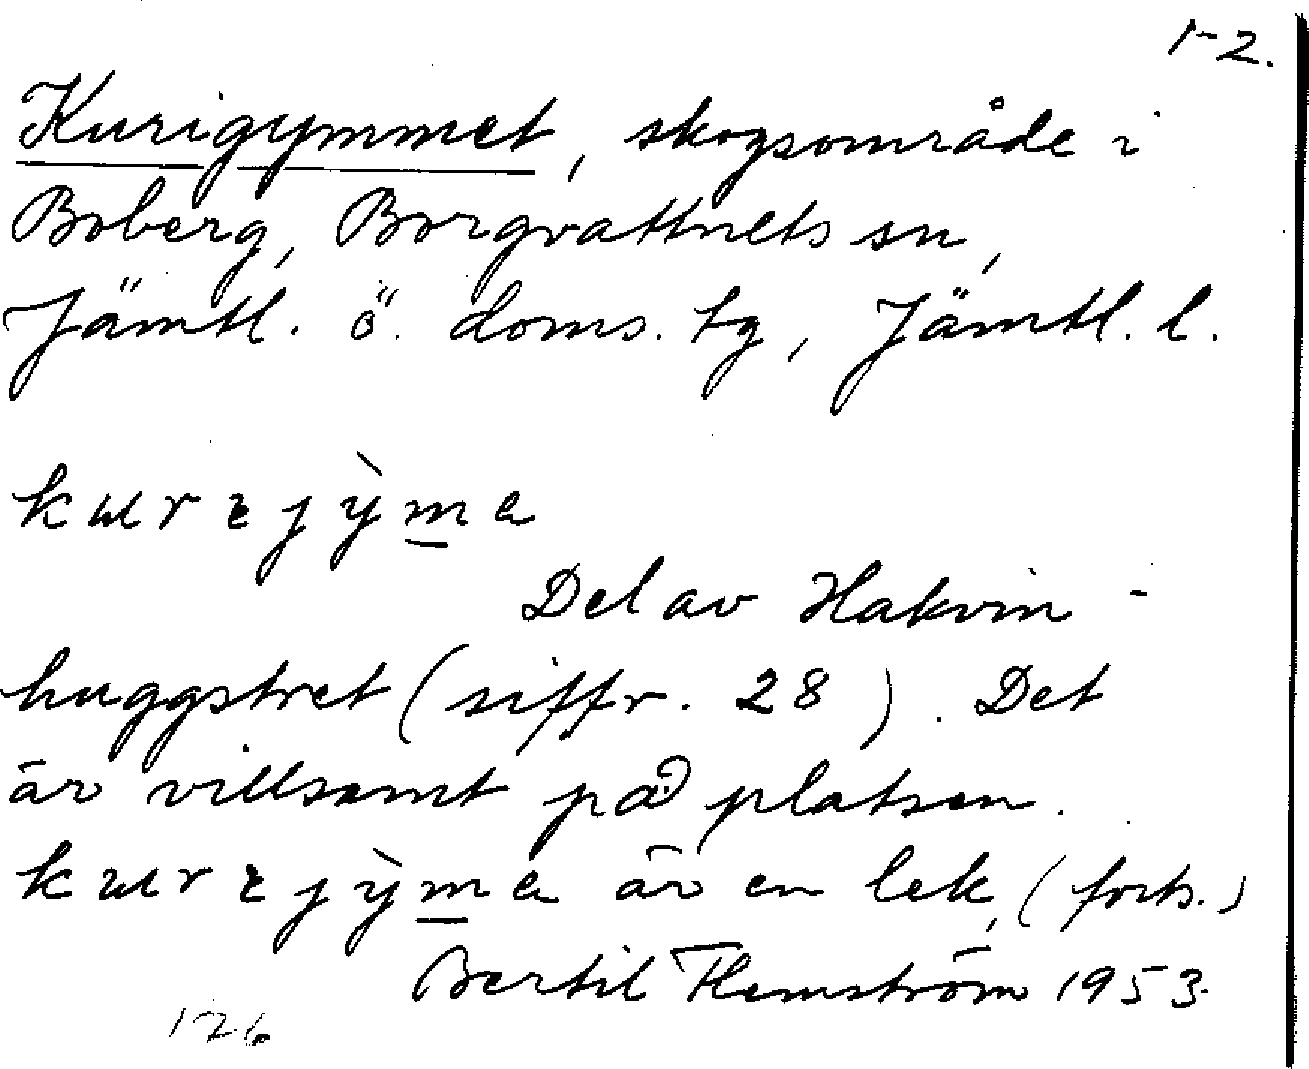 1-2.
Kurigymmet, skogsområde i
Boberg, Borgvattnets sn,
Jämtl. ö. doms. tg, Jämtl. l.
Del av Hakvin-
huggstret (siffr. 28). Det
är villsamt på platsen.
är en lek, (forts.)
Bertil Flemström 1953.
126